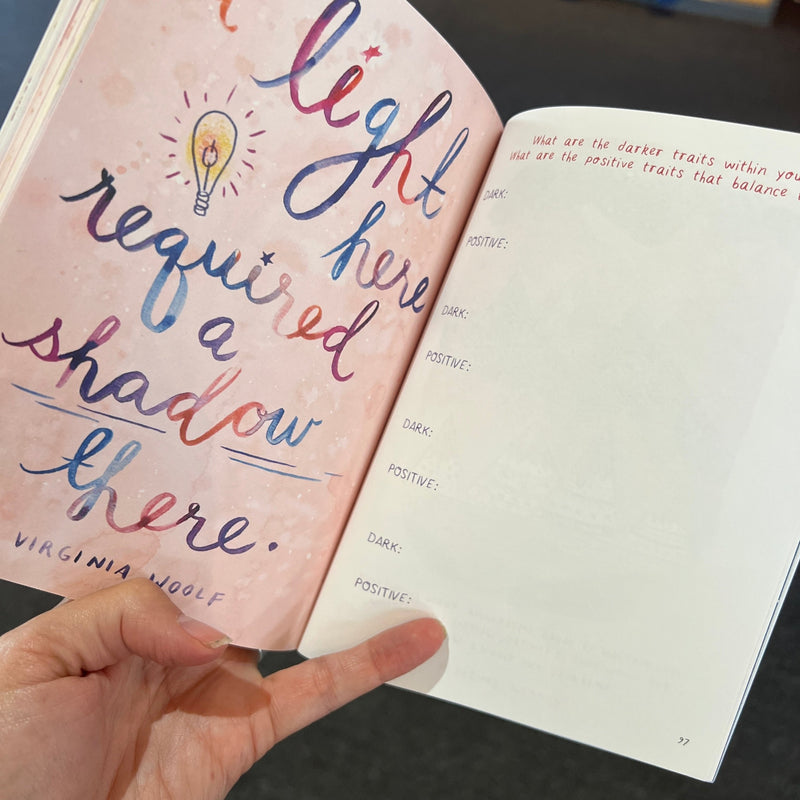 light
here
required
a
shadow
there.
VIRGINIA WOOLF
What are the darker traits within you
What are the positive traits that balance
DARK:
POSITIVE:
DARK:
POSITIVE:
DARK:
POSITIVE:
DARK:
POSITIVE:
97